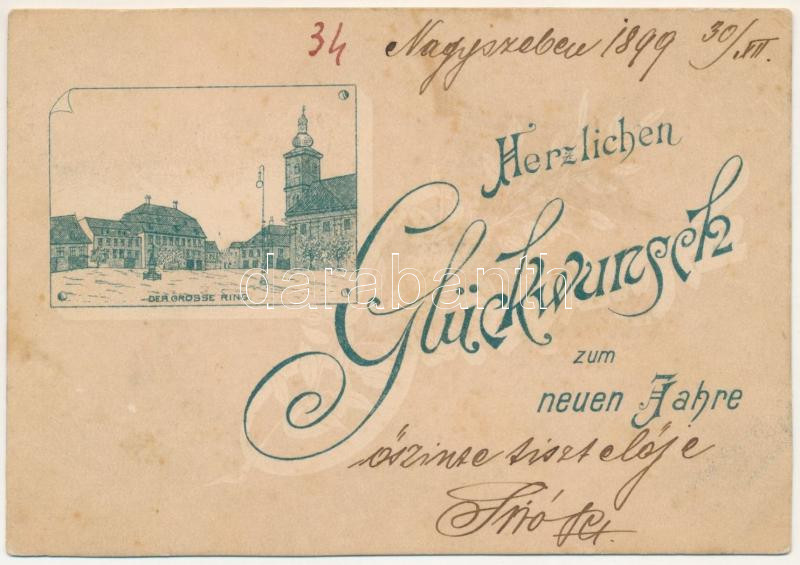 34
Nagyszeben 1899 30/XII.
Herzlichen
Glückwunsch
zum
neuen Jahre
DER GROSSE RING
darabanth
őszinte tisztelője